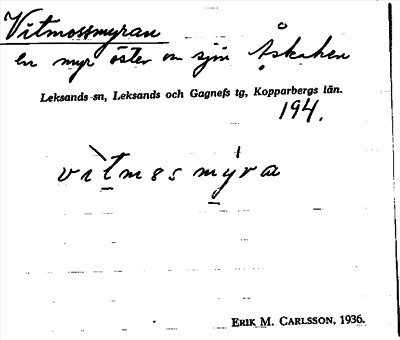 Vitmossmyran
en myr öster om sjön Åskaken
Leksands sn, Leksands och Gagnefs tg, Kopparbergs län.
194.
vìtmosmýra
ERIK M. CARLSSON, 1936.